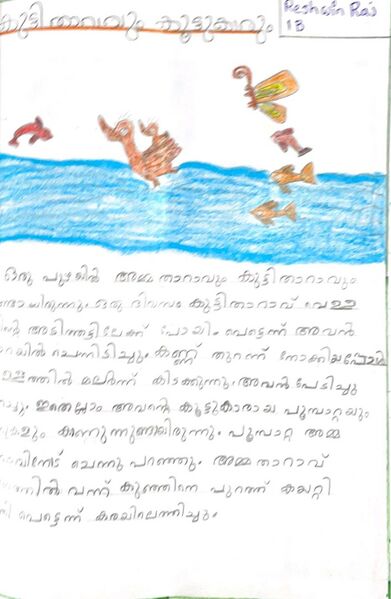 കുട്ടിത്താറാവും കൂട്ടുകാരും
Reshwin Raj
1B
ഒരു പുഴയിൽ അമ്മതാറാവും കുട്ടിതാറാവും
ണ്ടായിരുന്നു. ഒരു ദിവസം കുട്ടിതാറാവ് വെള്ള
ന്റെ അടിത്തട്ടിലേക്ക് പോയി. പെട്ടെന്ന് അവൻ
റയിൽ ചെന്നിടിച്ചു. കണ്ണ് തുറന്ന് നോക്കിയപ്പോൾ
ള്ളത്തിൽ മലർന്ന് കിടക്കുന്നു. അവൻ പേടിച്ചു
ഇതെല്ലാം അവന്റെ കൂട്ടുകാരായ പൂമ്പാറ്റയും
കളും കാണുന്നുണ്ടായിരുന്നു. പൂമ്പാറ്റ അമ്മ
വിനോട് ചെന്നു പറഞ്ഞു. അമ്മതാറാവ്
ത്തിൽ വന്ന് കുഞ്ഞിനെ പുറത്ത് കയറ്റി
പെട്ടെന്ന് കരയിലെത്തിച്ചു.